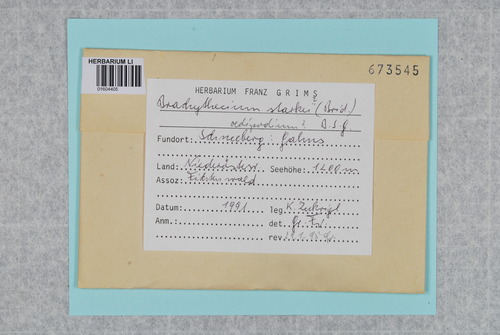 HERBARIUM LI
01604405
673545
HERBARIUM FRANZ GRIMS
Brachythecium starkei (Brid.)
B.S.G.
Fundort: Schneeberg: Gahns
Land: Niederösterr. Seehöhe: 1400 m
Assoz: Fichtenwald
Datum: 1991 leg. K. Zukrigl
Anm.: det. Gr. Fr.
rev.